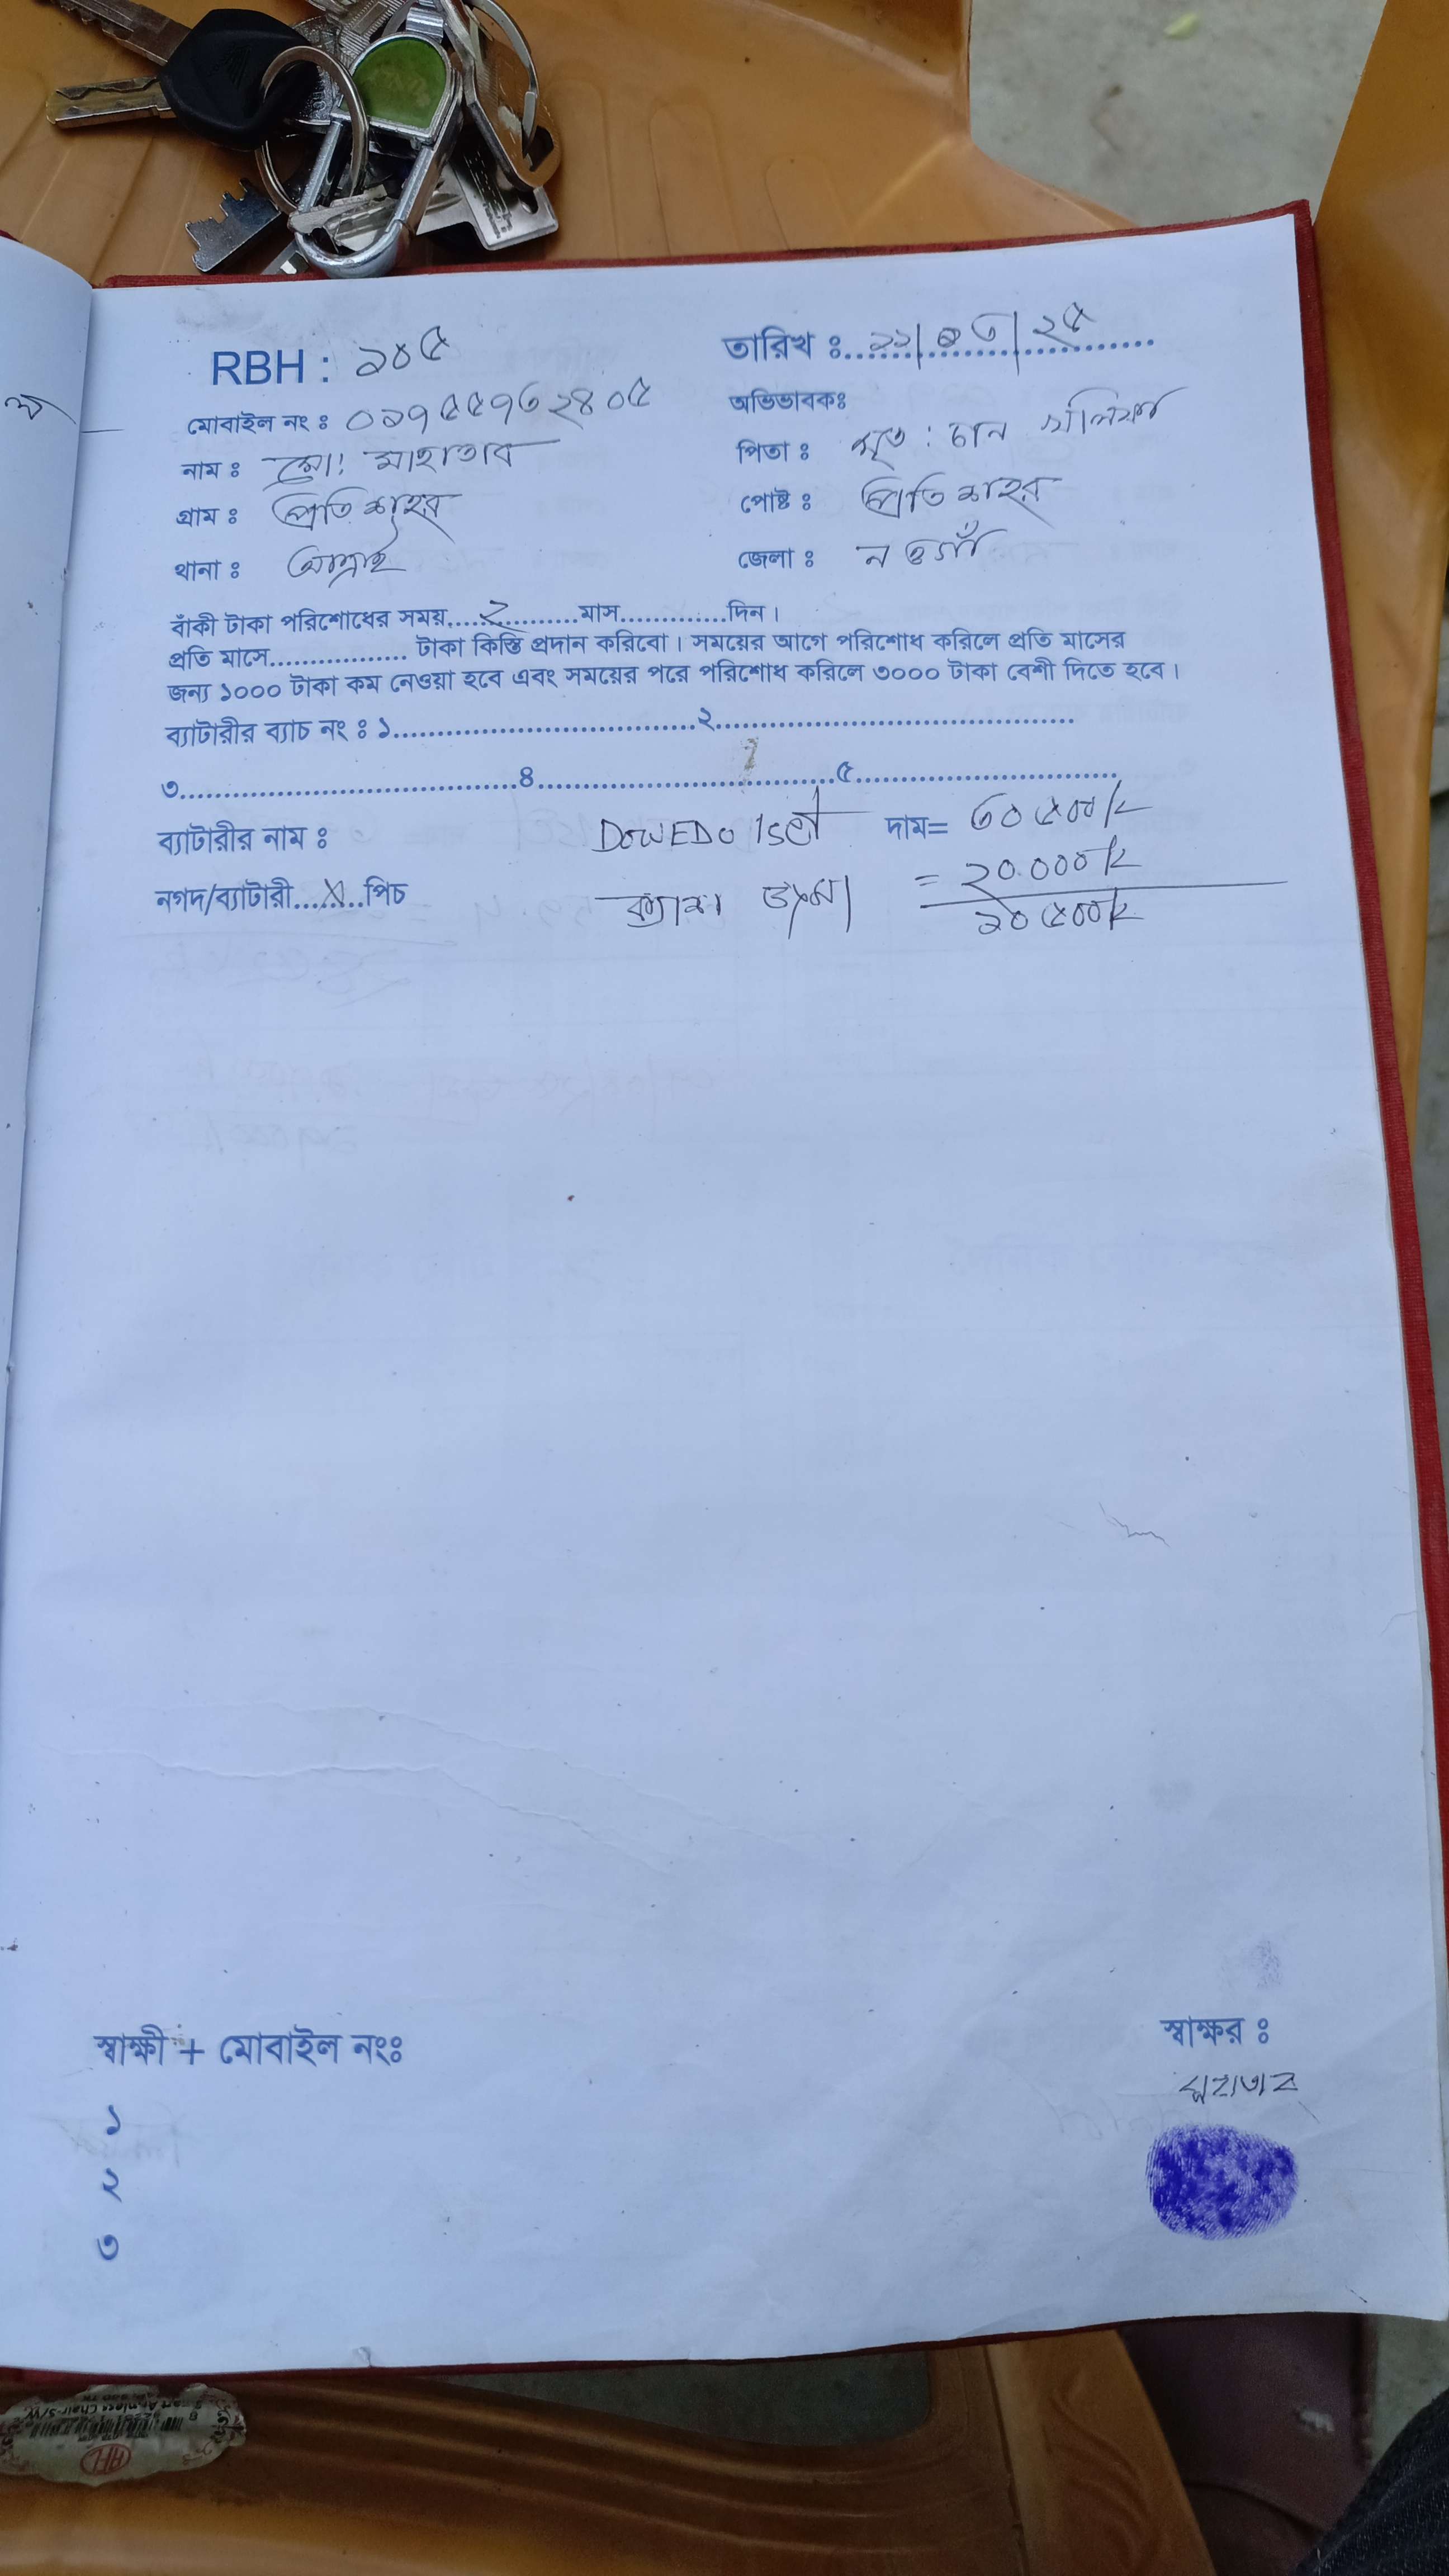 RBH : ১০৫
তারিখ ঃ ২২/০৩/২৫
মোবাইল নং ঃ ০১৭৫৫৭৬২৪০৫
অভিভাবকঃ
নাম ঃ মো: মাহাতাব
পিতা ঃ মৃত : চান খলিফা
গ্রাম ঃ প্রতিশহর
পোষ্ট ঃ প্রতিশহর
থানা ঃ আত্রাই
জেলা ঃ নওগাঁ
বাঁকী টাকা পরিশোধের সময়......২..........মাস.............দিন।
প্রতি মাসে................. টাকা কিস্তি প্রদান করিবো। সময়ের আগে পরিশোধ করিলে প্রতি মাসের
জন্য ১০০০ টাকা কম নেওয়া হবে এবং সময়ের পরে পরিশোধ করিলে ৩০০০ টাকা বেশী দিতে হবে।
ব্যাটারীর ব্যাচ নং ঃ ১....................................২...........................................
৩.........................................৪....................................৫................................
ব্যাটারীর নাম ঃ DOWEDO 1set দাম= ৩০৫০০/=
নগদ/ব্যাটারী...X...পিচ ক্যাশ জমা = ২০.০০০/=
১০৫০০/=
স্বাক্ষী + মোবাইল নংঃ
স্বাক্ষর ঃ
মাহাতাব
১
২
৩